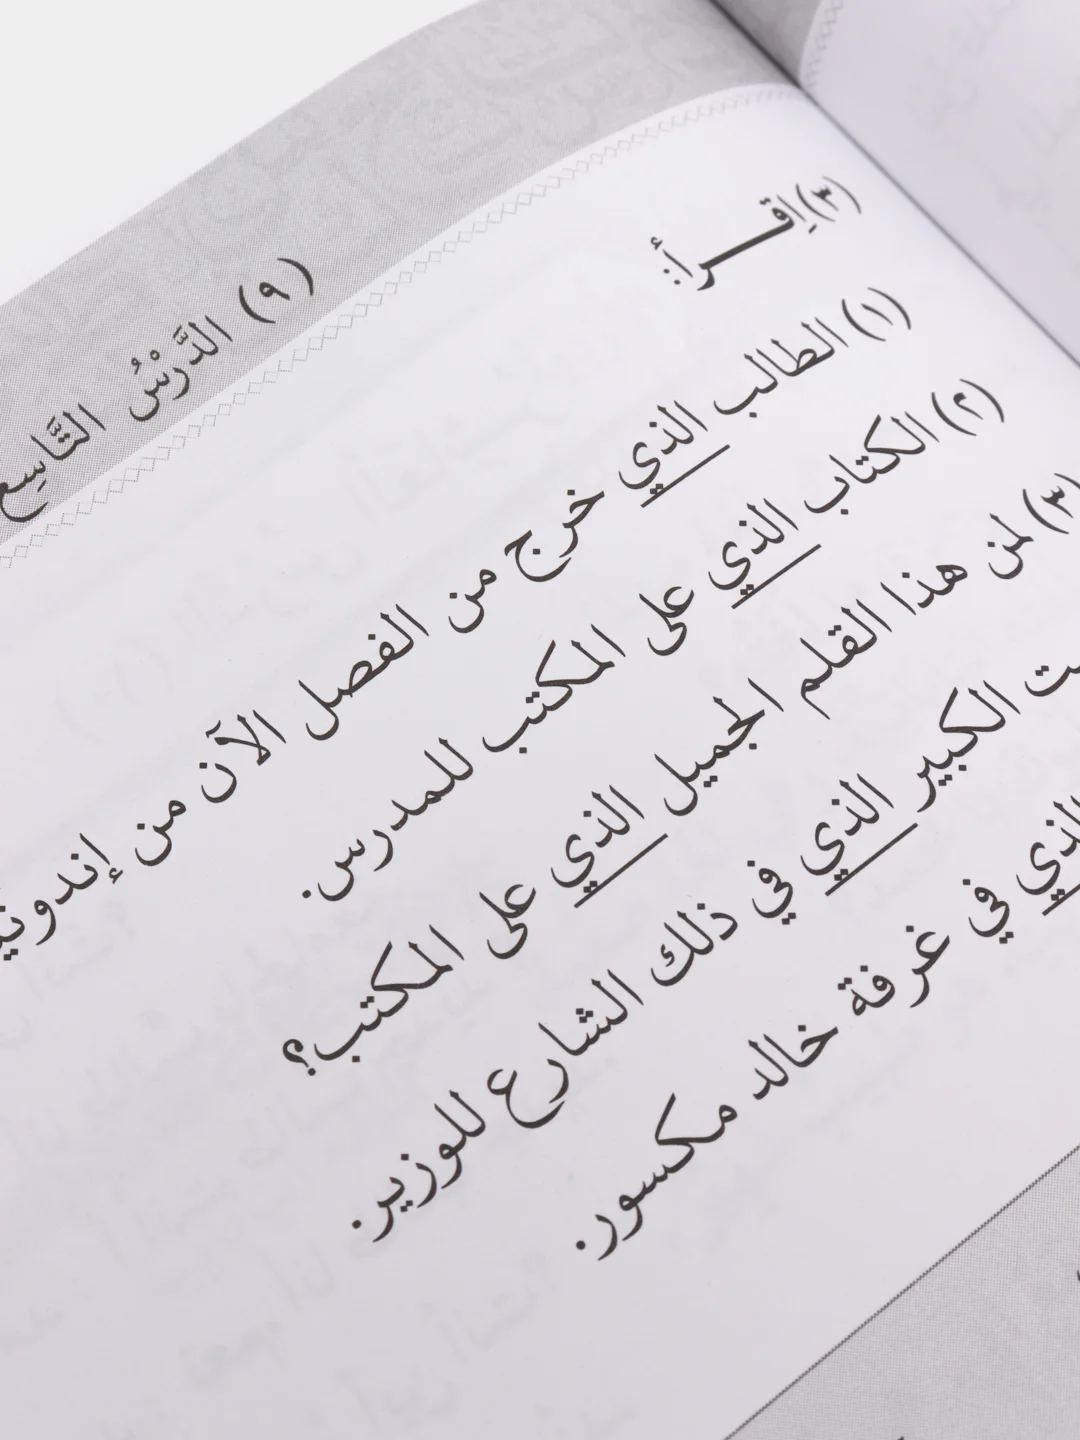 (٩) الدَّرْسُ التَّاسِع
(٣) اِقْـــرأ:
(١) الطالب الذي خرج من الفصل الآن من
(٢) الكتاب الذي على المكتب للمدرس.
(٣) لمن هذا القلم الجميل الذي على المكتب؟
الكبير الذي في ذلك الشارع للوزير.
الذي في غرفة خالد مكسور.